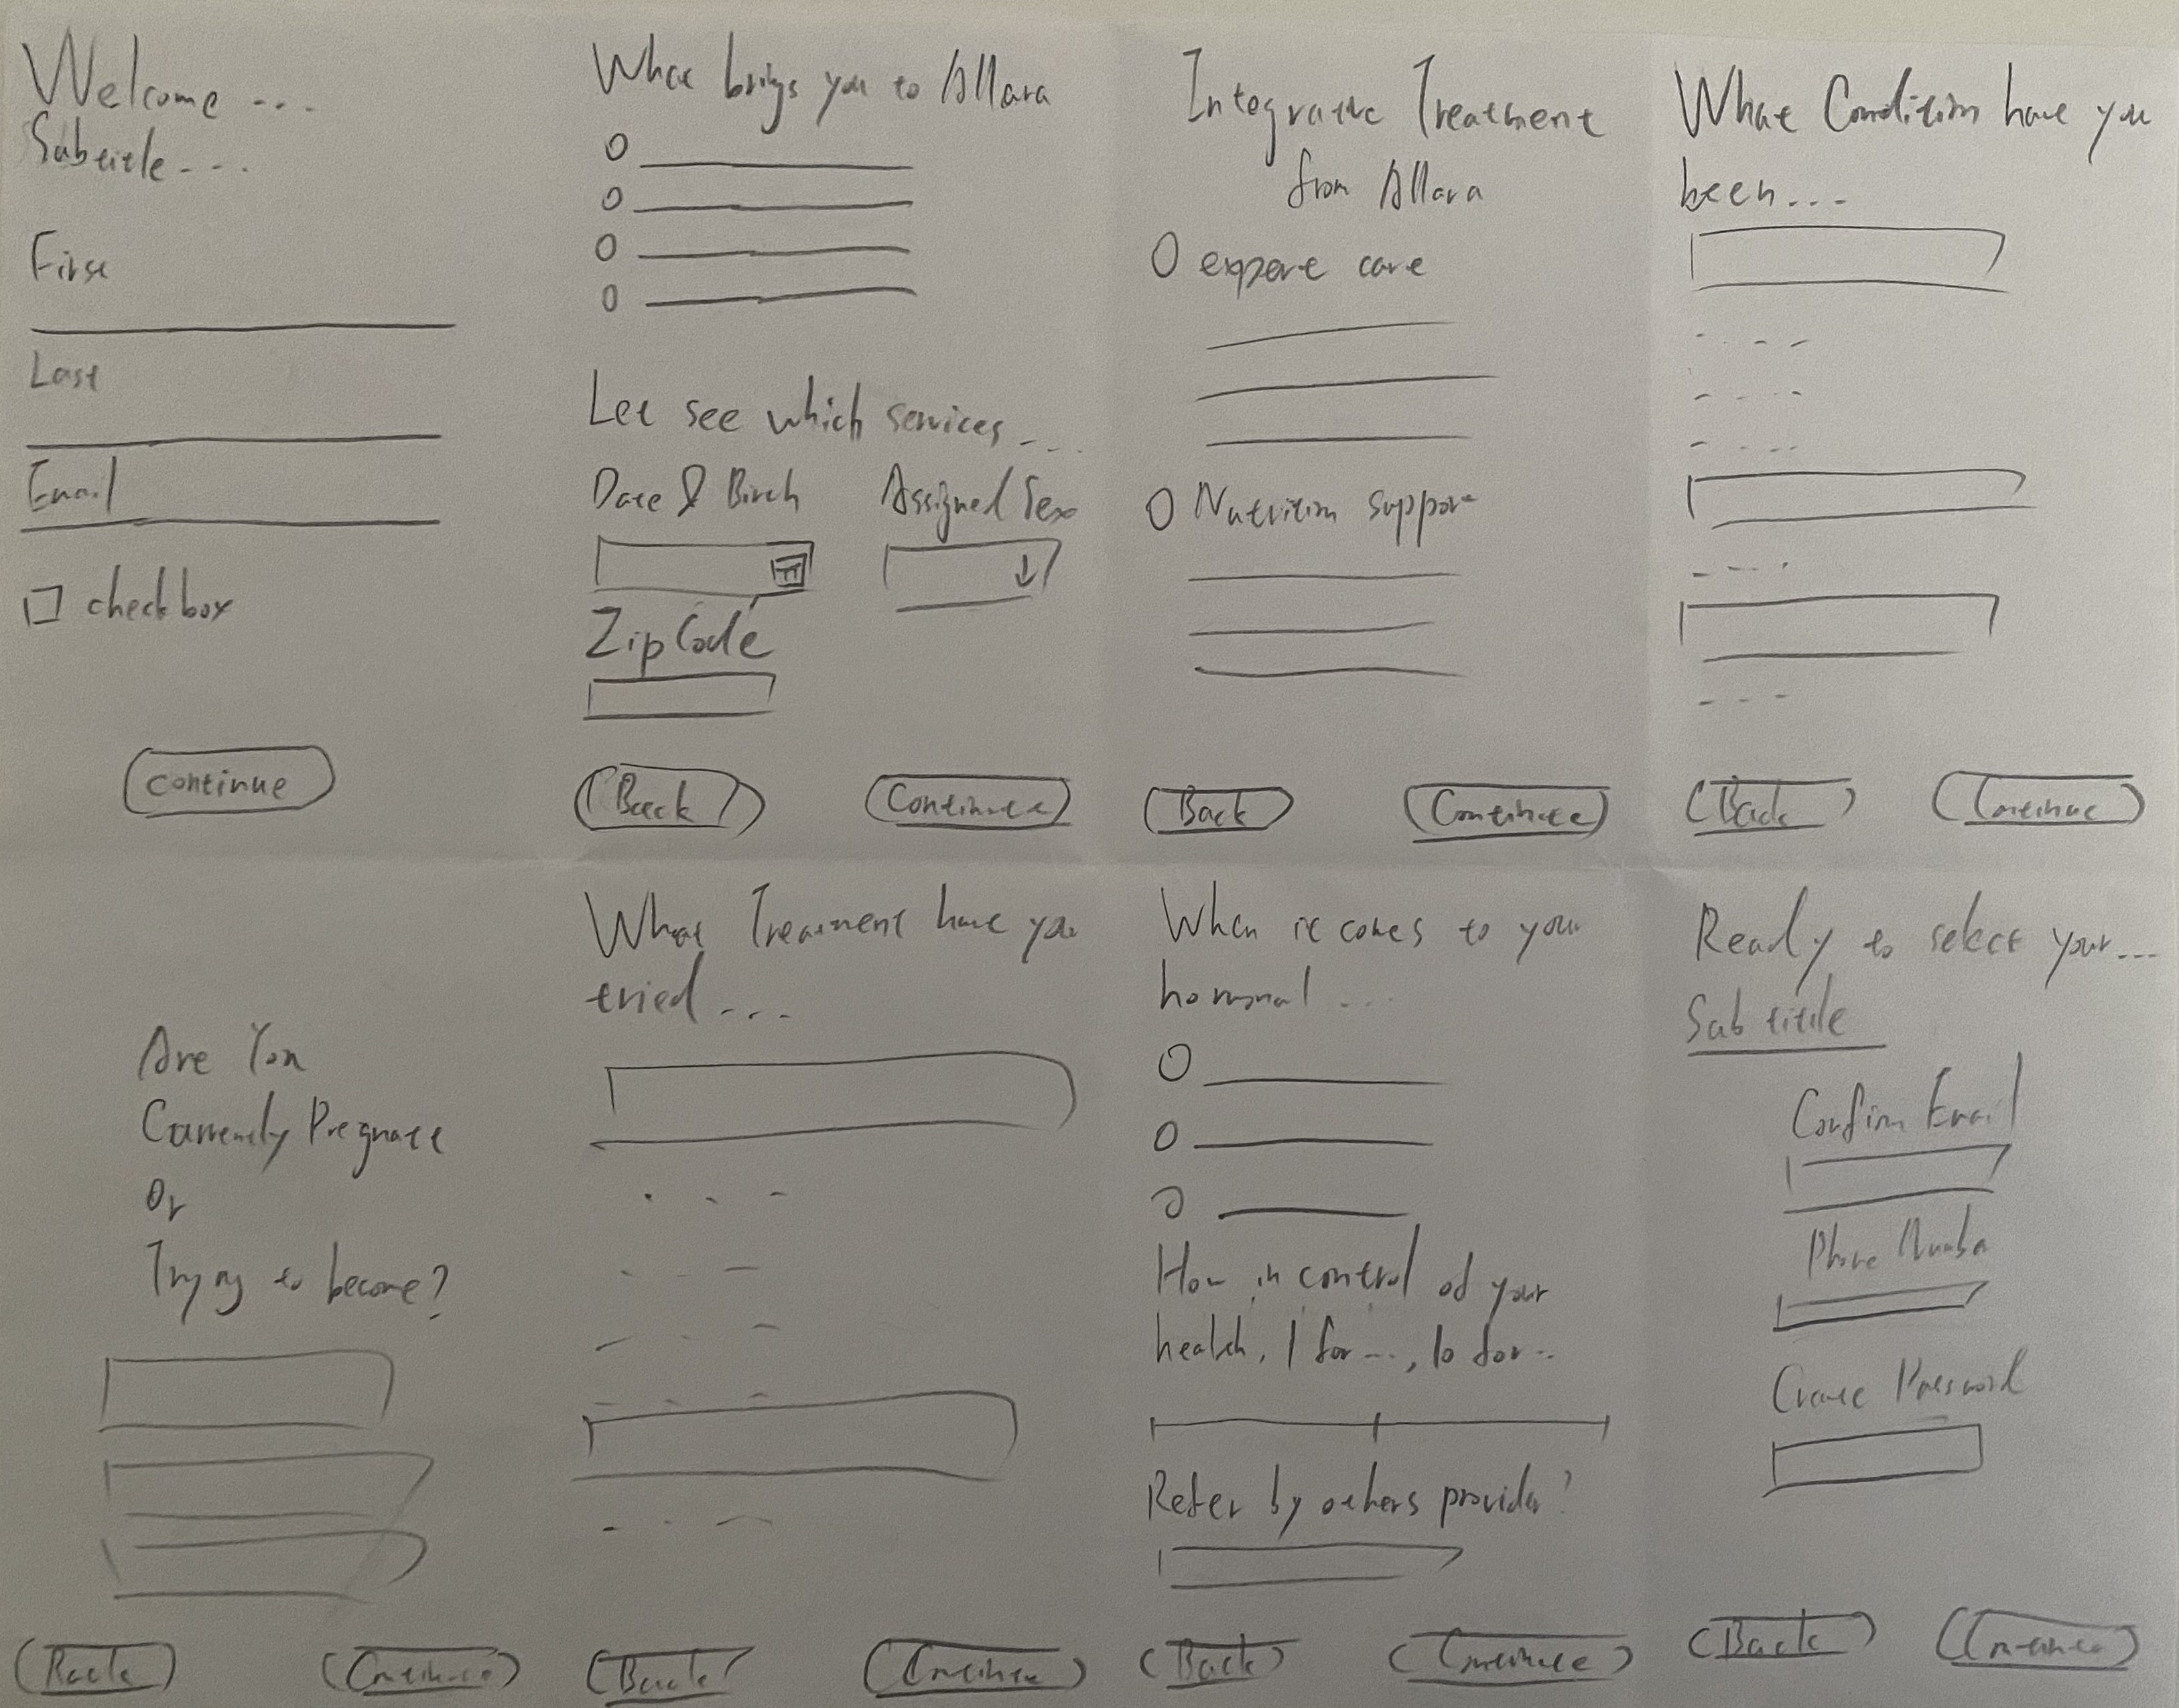 Welcome ...
Subtitle ...
First
Last
Email
checkbox
Continue
What brigs you to Allara
Let see which services ...
Date of Birth
Assigned Sex
Zip Code
Back
Continue
Integrative Treatment
from Allara
expert care
Nutrition support
Back
Continue
What Condition have you
been...
Back
Continue
Are You
Currently Pregnant
Or
Trying to become?
Back
Continue
What Treatment have you
tried ...
Back
Continue
When it comes to your
hormonal ...
How in control of your
health, 1 for ..., 10 for ..
Refer by others provider?
Back
Continue
Ready to select your ...
Subtitle
Confirm Email
Phone Number
Create Password
Back
Continue